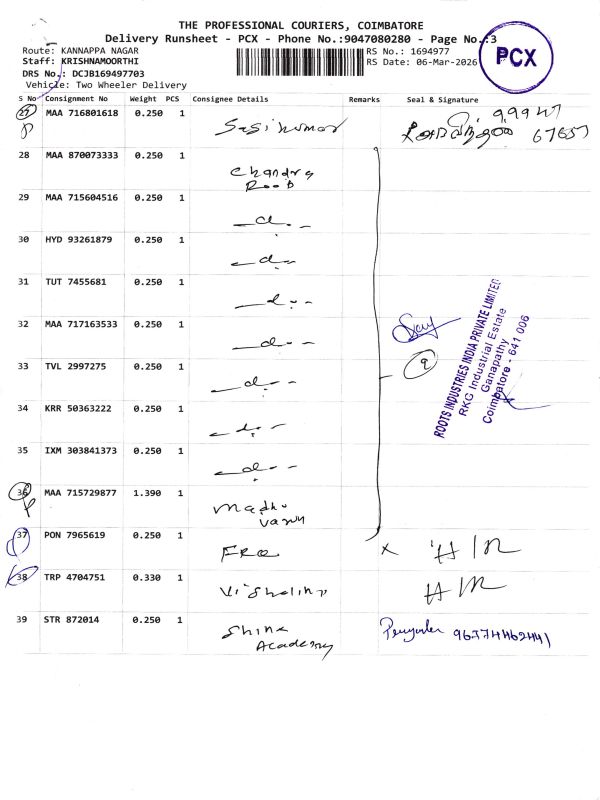 THE PROFESSIONAL COURIERS, COIMBATORE
Delivery Runsheet - PCX - Phone No.:9047080280 - Page No.:3
Route: KANNAPPA NAGAR
Staff: KRISHNAMOORTHI
DRS No.: DCJB169497703
Vehicle: Two Wheeler Delivery
RS No.: 1694977
RS Date: 06-Mar-2026
PCX
S No Consignment No Weight PCS Consignee Details Remarks Seal & Signature
27 MAA 716801618 0.250 1 Sasikumar
67657
28 MAA 870073333 0.250 1 Chandra
29 MAA 715604516 0.250 1 - d. -
30 HYD 93261879 0.250 1 - d. -
31 TUT 7455681 0.250 1 - d. -
32 MAA 717163533 0.250 1 - d. -
33 TVL 2997275 0.250 1 - d. -
34 KRR 50363222 0.250 1 - d. -
35 IXM 303841373 0.250 1 - d. -
9
ROOTS INDUSTRIES INDIA PRIVATE LIMITED
RKG Industrial Estate
Ganapathy
Coimbatore - 641 006
36 MAA 715729877 1.390 1 Madhu
37 PON 7965619 0.250 1
38 TRP 4704751 0.330 1
39 STR 872014 0.250 1 Shine
Academy